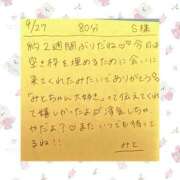 9/27 80分 S様
約2週間ぶりだね♡♡今日は
空き枠を埋めるために会いに
来てくれたみたいでありがとう
「みとちゃん大好き」って伝えてくれ
て嬉しかったよ 浮気しちゃ
やだよ?♡またいつでも待って
るね!!
みと